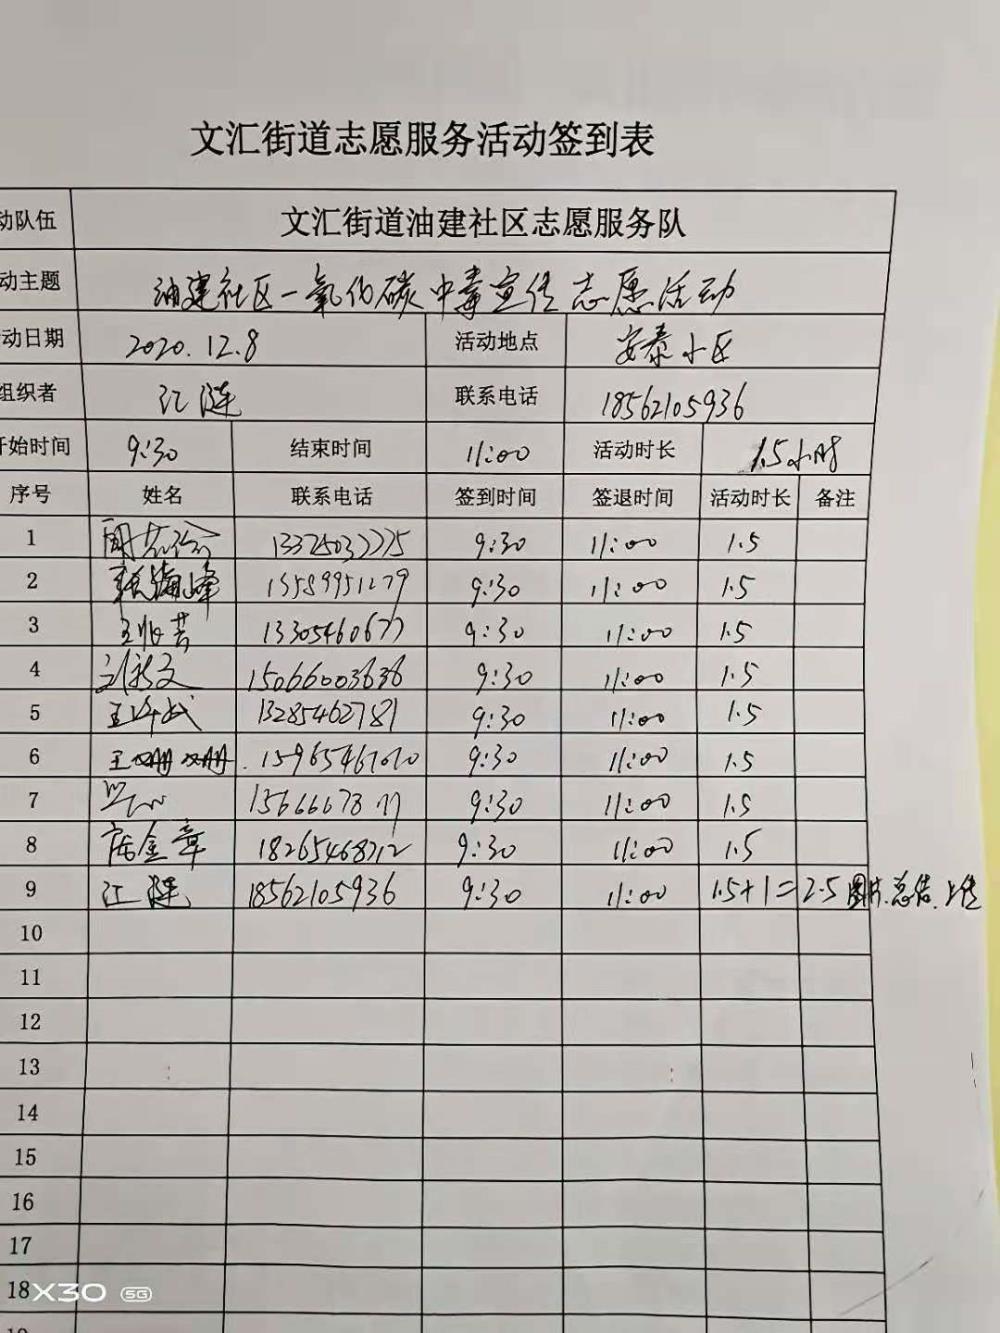 文汇街道志愿服务活动签到表
动队伍 文汇街道油建社区志愿服务队
动主题 油建社区一氧化碳中毒宣传志愿活动
动日期 2020.12.8 活动地点 安泰小区
组织者 江涟 联系电话 18562105936
开始时间 9:30 结束时间 11:00 活动时长 1.5小时
序号 姓名 联系电话 签到时间 签退时间 活动时长 备注
1 9:30 11:00 1.5
2 张海峰 13589951279 9:30 11:00 1.5
3 13305460677 9:30 11:00 1.5
4 15066003636 9:30 11:00 1.5
5 13285462781 9:30 11:00 1.5
6 王珊珊 9:30 11:00 1.5
7 9:30 11:00 1.5
8 金章 18265468712 9:30 11:00 1.5
9 江涟 18562105936 9:30 11:00 1.5+1=2.5 图片.总结.上传
10
11
12
13
14
15
16
17
18
X30 5G